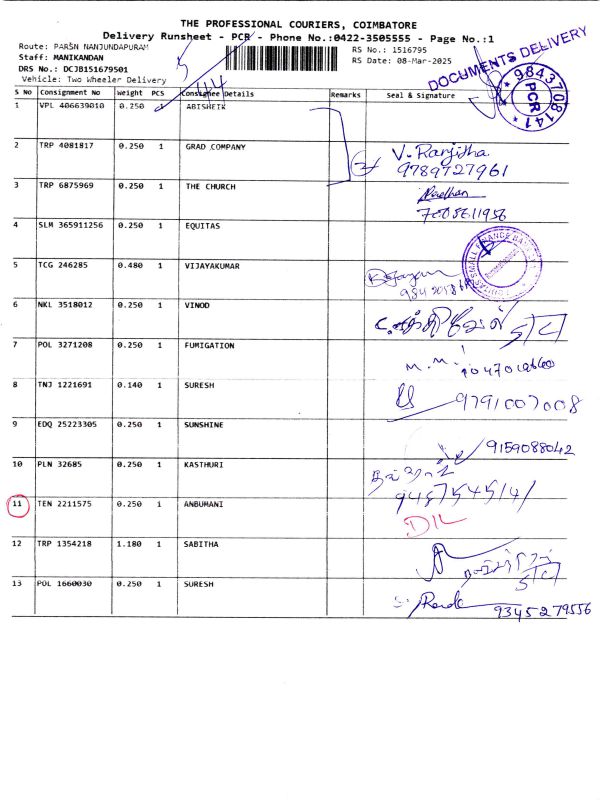 THE PROFESSIONAL COURIERS, COIMBATORE
Delivery Runsheet - PCR - Phone No.:0422-3505555 - Page No.:1
Route: PARSN NANJUNDAPURAM
RS No.: 1516795
Staff: MANIKANDAN
RS Date: 08-Mar-2025
DRS No.: DCJB151679501
Vehicle: Two Wheeler Delivery
DOCUMENTS DELIVERY
9843708141
PCR
S NO Consignment No Weight PCS Consignee Details Remarks Seal & Signature
1 VPL 406639010 0.250 1 ABISHEIK
2 TRP 4081817 0.250 1 GRAD COMPANY
V. Ranjitha
9789727961
3 TRP 6875969 0.250 1 THE CHURCH
4 SLM 365911256 0.250 1 EQUITAS
SMALL FINANCE BANK
5 TCG 246285 0.480 1 VIJAYAKUMAR
6 NKL 3518012 0.250 1 VINOD
7 POL 3271208 0.250 1 FUMIGATION
8 TNJ 1221691 0.140 1 SURESH
9791007008
9 EDQ 25223305 0.250 1 SUNSHINE
9159088042
10 PLN 32685 0.250 1 KASTHURI
9487545141
11 TEN 2211575 0.250 1 ANBUMANI
D/L
12 TRP 1354218 1.180 1 SABITHA
13 POL 1660030 0.250 1 SURESH
9345279556